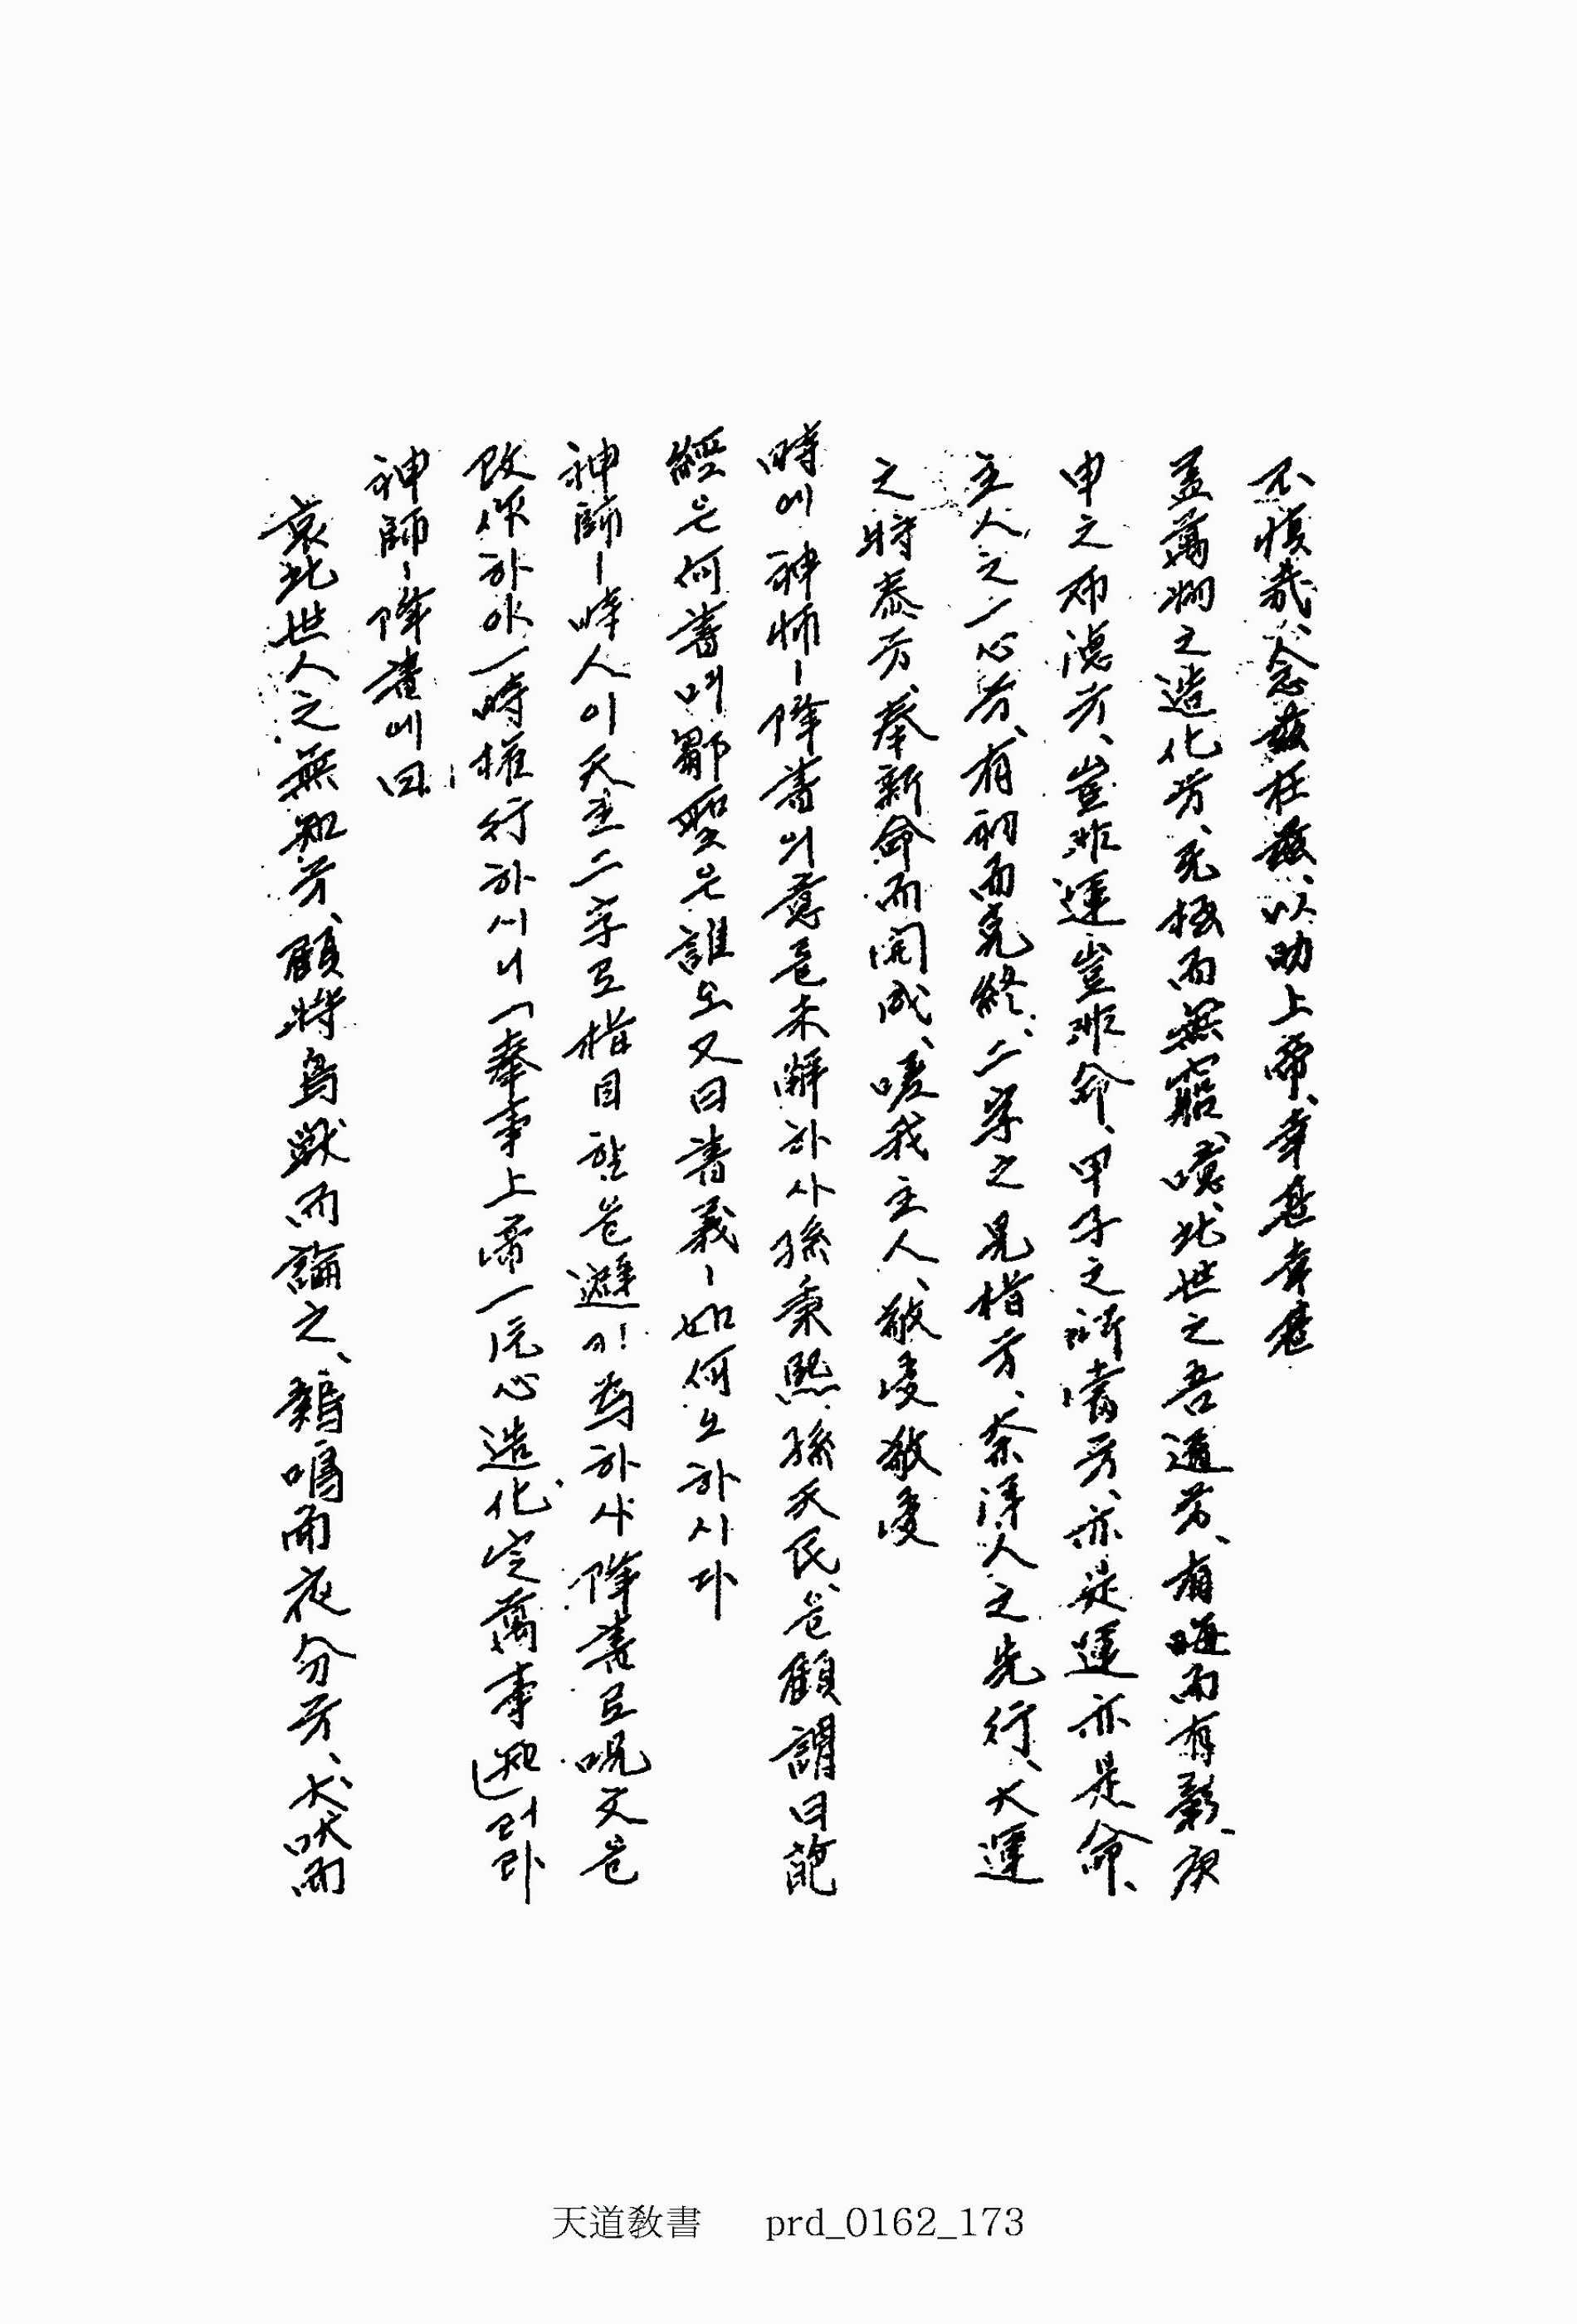 不愼哉、念玆在玆、以助上帝、幸甚幸甚
盖萬物之造化兮、无極而無窮、噫、此世之吾道兮、有晦而有彰、庚
申之布德兮、豈非運豈非命、甲子之所當兮、亦是運亦是命、
主人之一心兮、有初而克終、二字之見指兮、奈洋人之先行、大運
之將泰兮、奉新命而開成、嗟我主人、敬受敬受
時에 神師ㅣ降書의意를未解하사孫秉熙孫天民을顧謂曰葩
經은何書며鄒聖은誰오又曰書義ㅣ如何오하시다
神師ㅣ時人이天主二字로指目함을避키爲하사降書로呪文을
改作하야一時權行하시니「奉事上帝一片心造化定萬事知」러라
神師ㅣ降書에曰
哀此世人之無知兮、顧將鳥獸而論之、鷄鳴而夜分兮、犬吠而
天道敎書 prd_0162_173